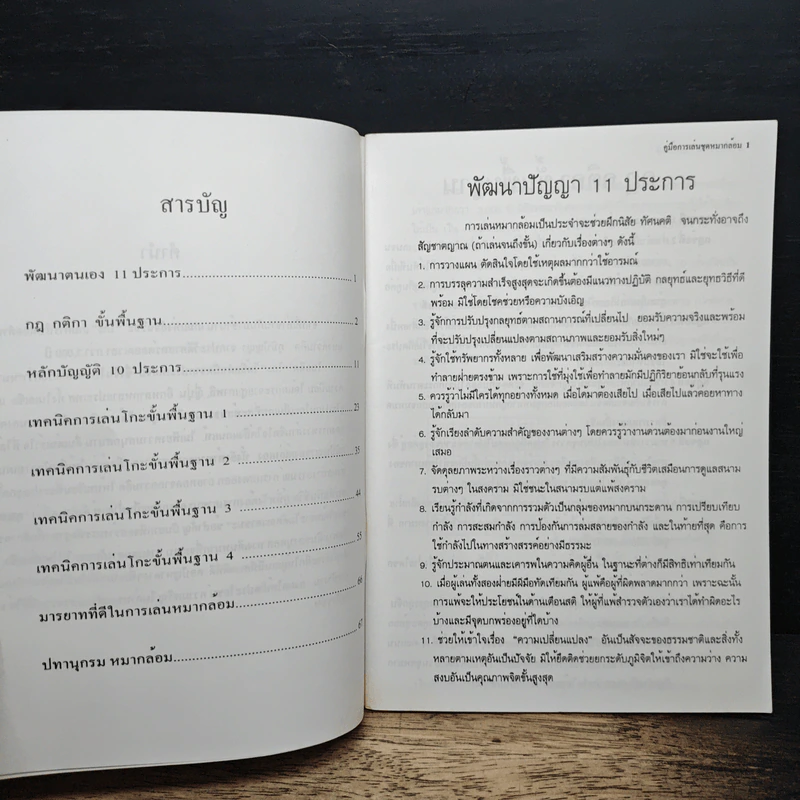 สารบัญ
พัฒนาตนเอง 11 ประการ 1
กฎ กติกา ขั้นพื้นฐาน 2
หลักบัญญัติ 10 ประการ 11
เทคนิคการเล่นโกะขั้นพื้นฐาน 1
เทคนิคการเล่นโกะขั้นพื้นฐาน 2 35
เทคนิคการเล่นโกะขั้นพื้นฐาน 3 44
เทคนิคการเล่นโกะขั้นพื้นฐาน 4 55
มารยาทที่ดีในการเล่นหมากล้อม 66
ปทานุกรม หมากล้อม 67
คู่มือการเล่นชุดหมากล้อม 1
พัฒนาปัญญา 11 ประการ
การเล่นหมากล้อมเป็นประจำจะช่วยฝึกนิสัย ทัศนคติ จนกระทั่งอาจถึง
สัญชาตญาณ (ถ้าเล่นจนถึงขั้น) เกี่ยวกับเรื่องต่างๆ ดังนี้
1. การวางแผน ตัดสินใจโดยใช้เหตุผลมากกว่าใช้อารมณ์
2. การบรรลุความสำเร็จสูงสุดจะเกิดขึ้นต้องมีแนวทางปฏิบัติ กลยุทธ์และยุทธวิธีที่ดี
พร้อม มิใช่โดยโชคช่วยหรือความบังเอิญ
3. รู้จักการปรับปรุงกลยุทธ์ตามสถานการณ์ที่เปลี่ยนไป ยอมรับความจริงและพร้อม
ที่จะปรับปรุงเปลี่ยนแปลงตามสถานภาพและยอมรับสิ่งใหม่ๆ
4. รู้จักใช้ทรัพยากรทั้งหลาย เพื่อพัฒนาเสริมสร้างความมั่นคงของเรา มิใช่จะใช้เพื่อ
ทำลายฝ่ายตรงข้าม เพราะการใช้ที่มุ่งใช้เพื่อทำลายมักมีปฏิกิริยาย้อนกลับที่รุนแรง
5. ควรรู้ว่าไม่มีใครได้ทุกอย่างทั้งหมด เมื่อได้มาต้องเสียไป เมื่อเสียไปแล้วค่อยหาทาง
ได้กลับมา
6. รู้จักเรียงลำดับความสำคัญของงานต่างๆ โดยควรรู้ว่างานด่วนต้องมาก่อนงานใหญ่
เสมอ
7. จัดดุลยภาพระหว่างเรื่องราวต่างๆ ที่มีความสัมพันธุ์กับชีวิตเสมือนการดูแลสนาม
รบต่างๆ ในสงคราม มิใช่ชนะในสนามรบแต่แพ้สงคราม
8. เรียนรู้กำลังที่เกิดจากการรวมตัวเป็นกลุ่มของหมากบนกระดาน การเปรียบเทียบ
กำลัง การสะสมกำลัง การป้องกันการล่มสลายของกำลัง และในท้ายที่สุด คือการ
ใช้กำลังไปในทางสร้างสรรค์อย่างมีธรรมะ
9. รู้จักประมาณตนและเคารพในความคิดผู้อื่น ในฐานะที่ต่างก็มีสิทธิเท่าเทียมกัน
10. เมื่อผู้เล่นทั้งสองฝ่ายมีฝีมือทัดเทียมกัน ผู้แพ้คือผู้ที่ผิดพลาดมากกว่า เพราะฉะนั้น
การแพ้จะให้ประโยชน์ในด้านเตือนสติ ให้ผู้ที่แพ้สำรวจตัวเองว่าเราได้ทำผิดอะไร
บ้างและมีจุดบกพร่องอยู่ที่ใดบ้าง
11. ช่วยให้เข้าใจเรื่อง "ความเปลี่ยนแปลง" อันเป็นสัจจะของธรรมชาติและสิ่งทั้ง
หลายตามเหตุอันเป็นปัจจัย มิให้ยึดติดช่วยยกระดับภูมิจิตให้เข้าถึงความว่าง ความ
สงบอันเป็นคุณภาพจิตขั้นสูงสุด